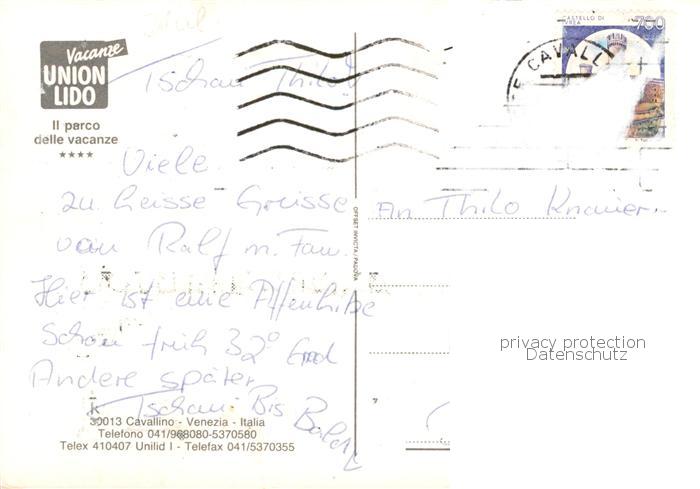 Vacanze
UNION
LIDO
Il parco
delle vacanze
****
CASTELLO DI
IVREA
700
CAVALL
Tschau Thilo
Viele
zu heisse Grüsse
von Ralf m. Fam.
Hier ist eine Affenhitze
Schon früh 32° Grad
Andere später
Tschau Bis Bald
An Thilo
OFFSET INVICTA/PADOVA
privacy protection
Datenschutz
30013 Cavallino - Venezia - Italia
Telefono 041/968080-5370580
Telex 410407 Unilid I - Telefax 041/5370355